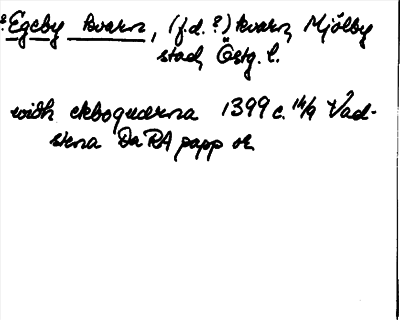 ?Egeby kvarn, (f.d.?) kvarn, Mjölby
stad, Östg. l.
widh ekboquærna 1399 c. 14/9 Vad-
stena DaRA papp or.